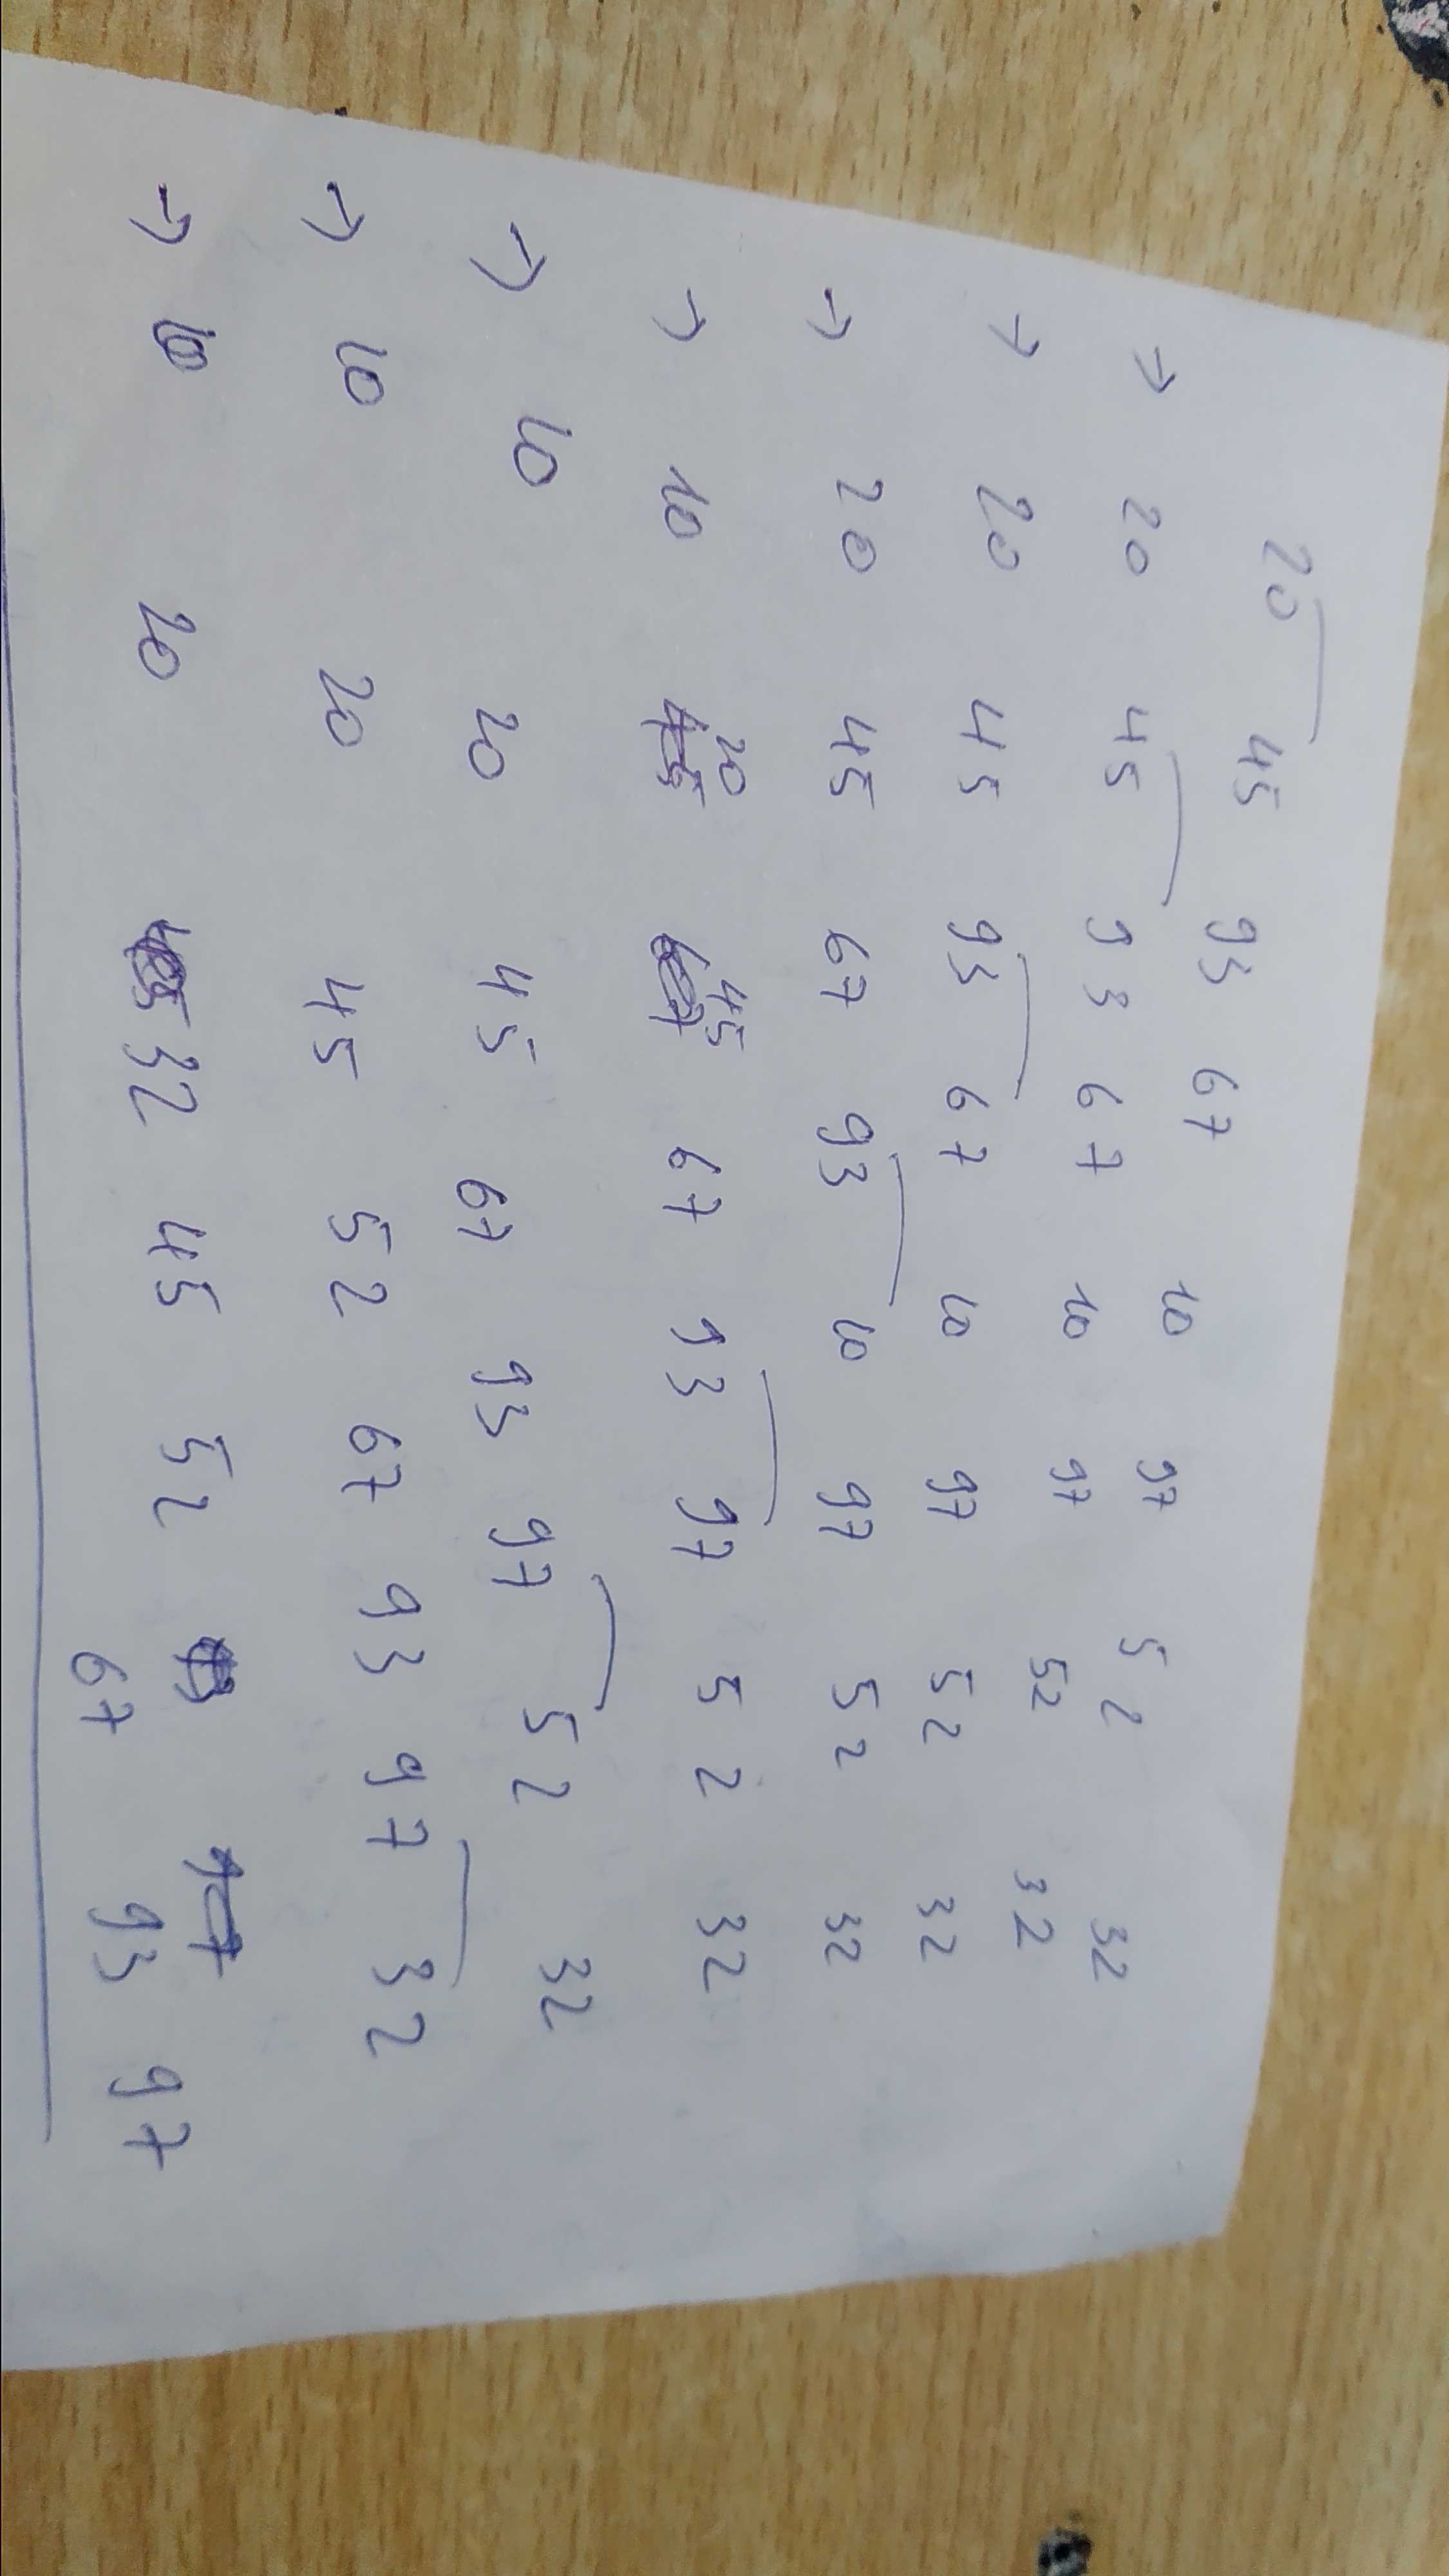 20 45 93 67 10 97 52 32
→ 20 45 93 67 10 97 52 32
→ 20 45 93 67 10 97 52 32
→ 20 45 67 93 10 97 52 32
20 45
→ 10 45 67 67 93 97 52 32
→ 10 20 45 67 93 97 52 32
→ 10 20 45 52 67 93 97 32
→ 10 20 32 45 52 97
67 93 97